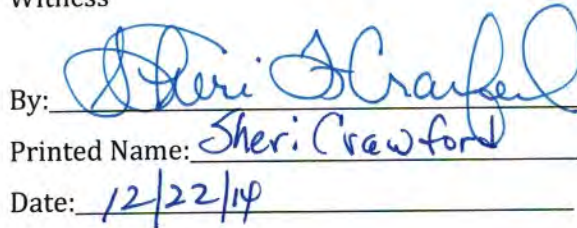 Witness
By: Sheri F Crawford
Printed Name: Sheri Crawford
Date: 12/22/14